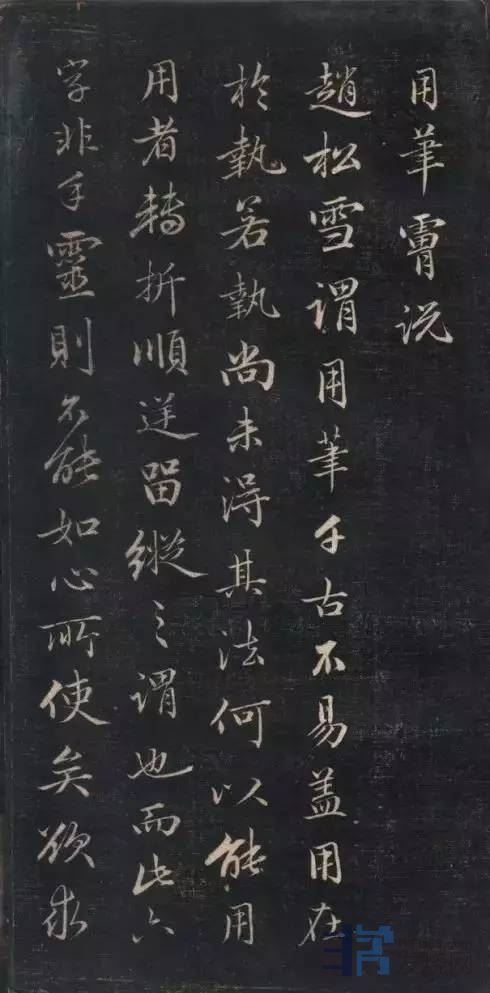 用筆霄説
趙松雪謂用筆千古不易盖用在
於執若執尚未得其法何以能用
用者轉折順逆留縱之謂也而此六
字非手靈則不能如心所使矣欲求